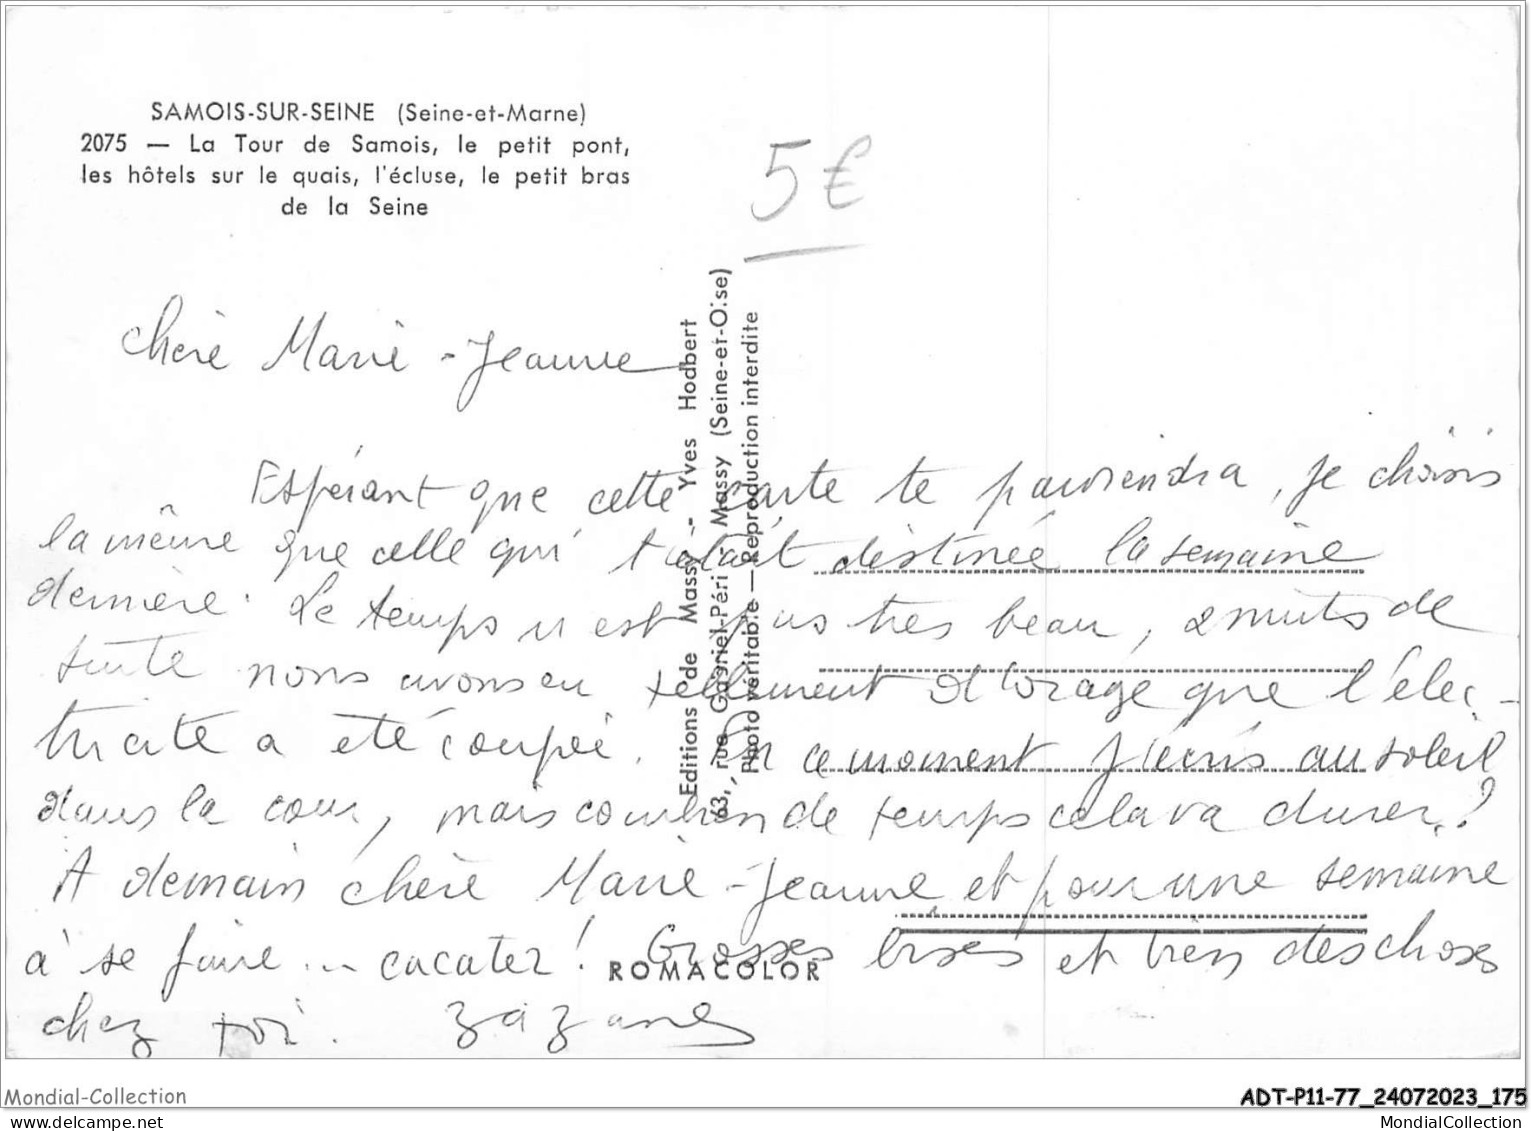 SAMOIS-SUR-SEINE (Seine-et-Marne)
2075 — La Tour de Samois, le petit pont,
les hôtels sur le quais, l'écluse, le petit bras
de la Seine
5€
Editions de Massy - Yves Hodbert
63, rue Gabriel-Péri - Massy (Seine-et-Oise)
Photo véritable — Reproduction interdite
chère Marie-Jeanne
Espérant que cette carte te parviendra, je choisis
la même que celle qui t'était destinée la semaine
dernière. Le temps n'est pas très beau, 2 nuits de
suite nous avons eu tellement d'orage que l'élec-
tricité a été coupée. En ce moment j'écris au soleil
dans la cour, mais combien de temps cela va durer ?
A demain chère Marie-Jeanne et pour une semaine
à se faire ... cacater ! Grosses bises et bien des choses
chez toi. Zazane
ROMACOLOR
Mondial-Collection
ADT-P11-77_24072023_175
www.mondial-collection.fr.nf
MondialCollection